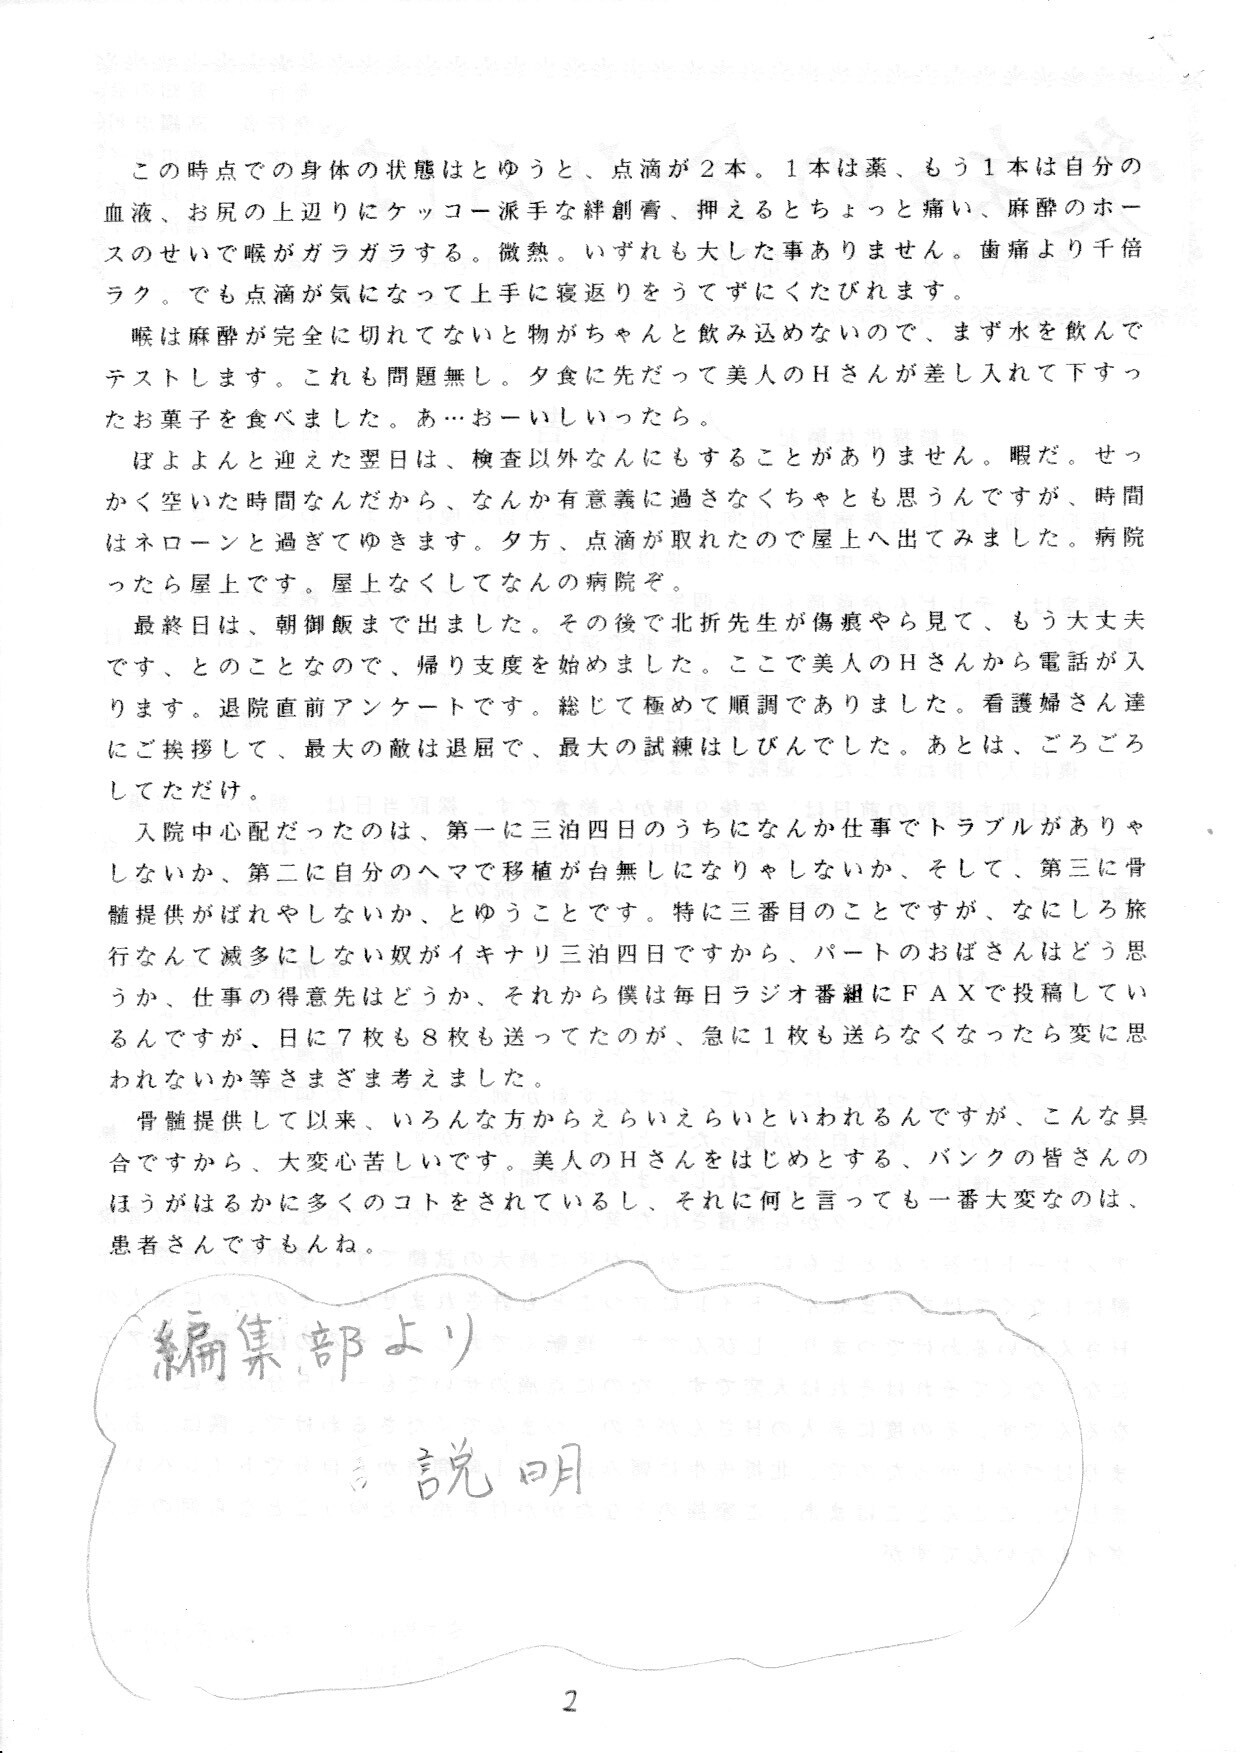 この時点での身体の状態はとゆうと、点滴が２本。１本は薬、もう１本は自分の
血液、お尻の上辺りにケッコー派手な絆創膏、押えるとちょっと痛い、麻酔のホー
スのせいで喉がガラガラする。微熱。いずれも大した事ありません。歯痛より千倍
ラク。でも点滴が気になって上手に寝返りをうてずにくたびれます。
喉は麻酔が完全に切れてないと物がちゃんと飲み込めないので、まず水を飲んで
テストします。これも問題無し。夕食に先だって美人のＨさんが差し入れて下すっ
たお菓子を食べました。あ…おーいしいったら。
ぽよよんと迎えた翌日は、検査以外なんにもすることがありません。暇だ。せっ
かく空いた時間なんだから、なんか有意義に過さなくちゃとも思うんですが、時間
はネローンと過ぎてゆきます。夕方、点滴が取れたので屋上へ出てみました。病院
ったら屋上です。屋上なくしてなんの病院ぞ。
最終日は、朝御飯まで出ました。その後で北折先生が傷痕やら見て、もう大丈夫
です、とのことなので、帰り支度を始めました。ここで美人のＨさんから電話が入
ります。退院直前アンケートです。総じて極めて順調でありました。看護婦さん達
にご挨拶して、最大の敵は退屈で、最大の試練はしびんでした。あとは、ごろごろ
してただけ。
入院中心配だったのは、第一に三泊四日のうちになんか仕事でトラブルがありゃ
しないか、第二に自分のヘマで移植が台無しになりゃしないか、そして、第三に骨
髄提供がばれやしないか、とゆうことです。特に三番目のことですが、なにしろ旅
行なんて滅多にしない奴がイキナリ三泊四日ですから、パートのおばさんはどう思
うか、仕事の得意先はどうか、それから僕は毎日ラジオ番組にＦＡＸで投稿してい
るんですが、日に７枚も８枚も送ってたのが、急に１枚も送らなくなったら変に思
われないか等さまざま考えました。
骨髄提供して以来、いろんな方からえらいえらいといわれるんですが、こんな具
合ですから、大変心苦しいです。美人のＨさんをはじめとする、バンクの皆さんの
ほうがはるかに多くのコトをされているし、それに何と言っても一番大変なのは、
患者さんですもんね。
編集部より
説明
2